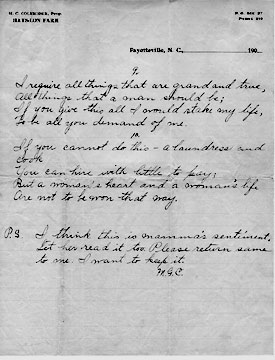 Fayetteville, N. C., 190
9.
I require all things that are grand and true,
All things that a man should be;
If you give this all I would stake my life,
To be all you demand of me.
10
If you cannot do this - a laundress and
cook
You can hire with little to pay;
But a woman's heart and a woman's life
Are not to be won that way.
P.S. I think this is mamma's sentiment,
Let her read it too. Please return same
to me. I want to keep it.
M.G.C.